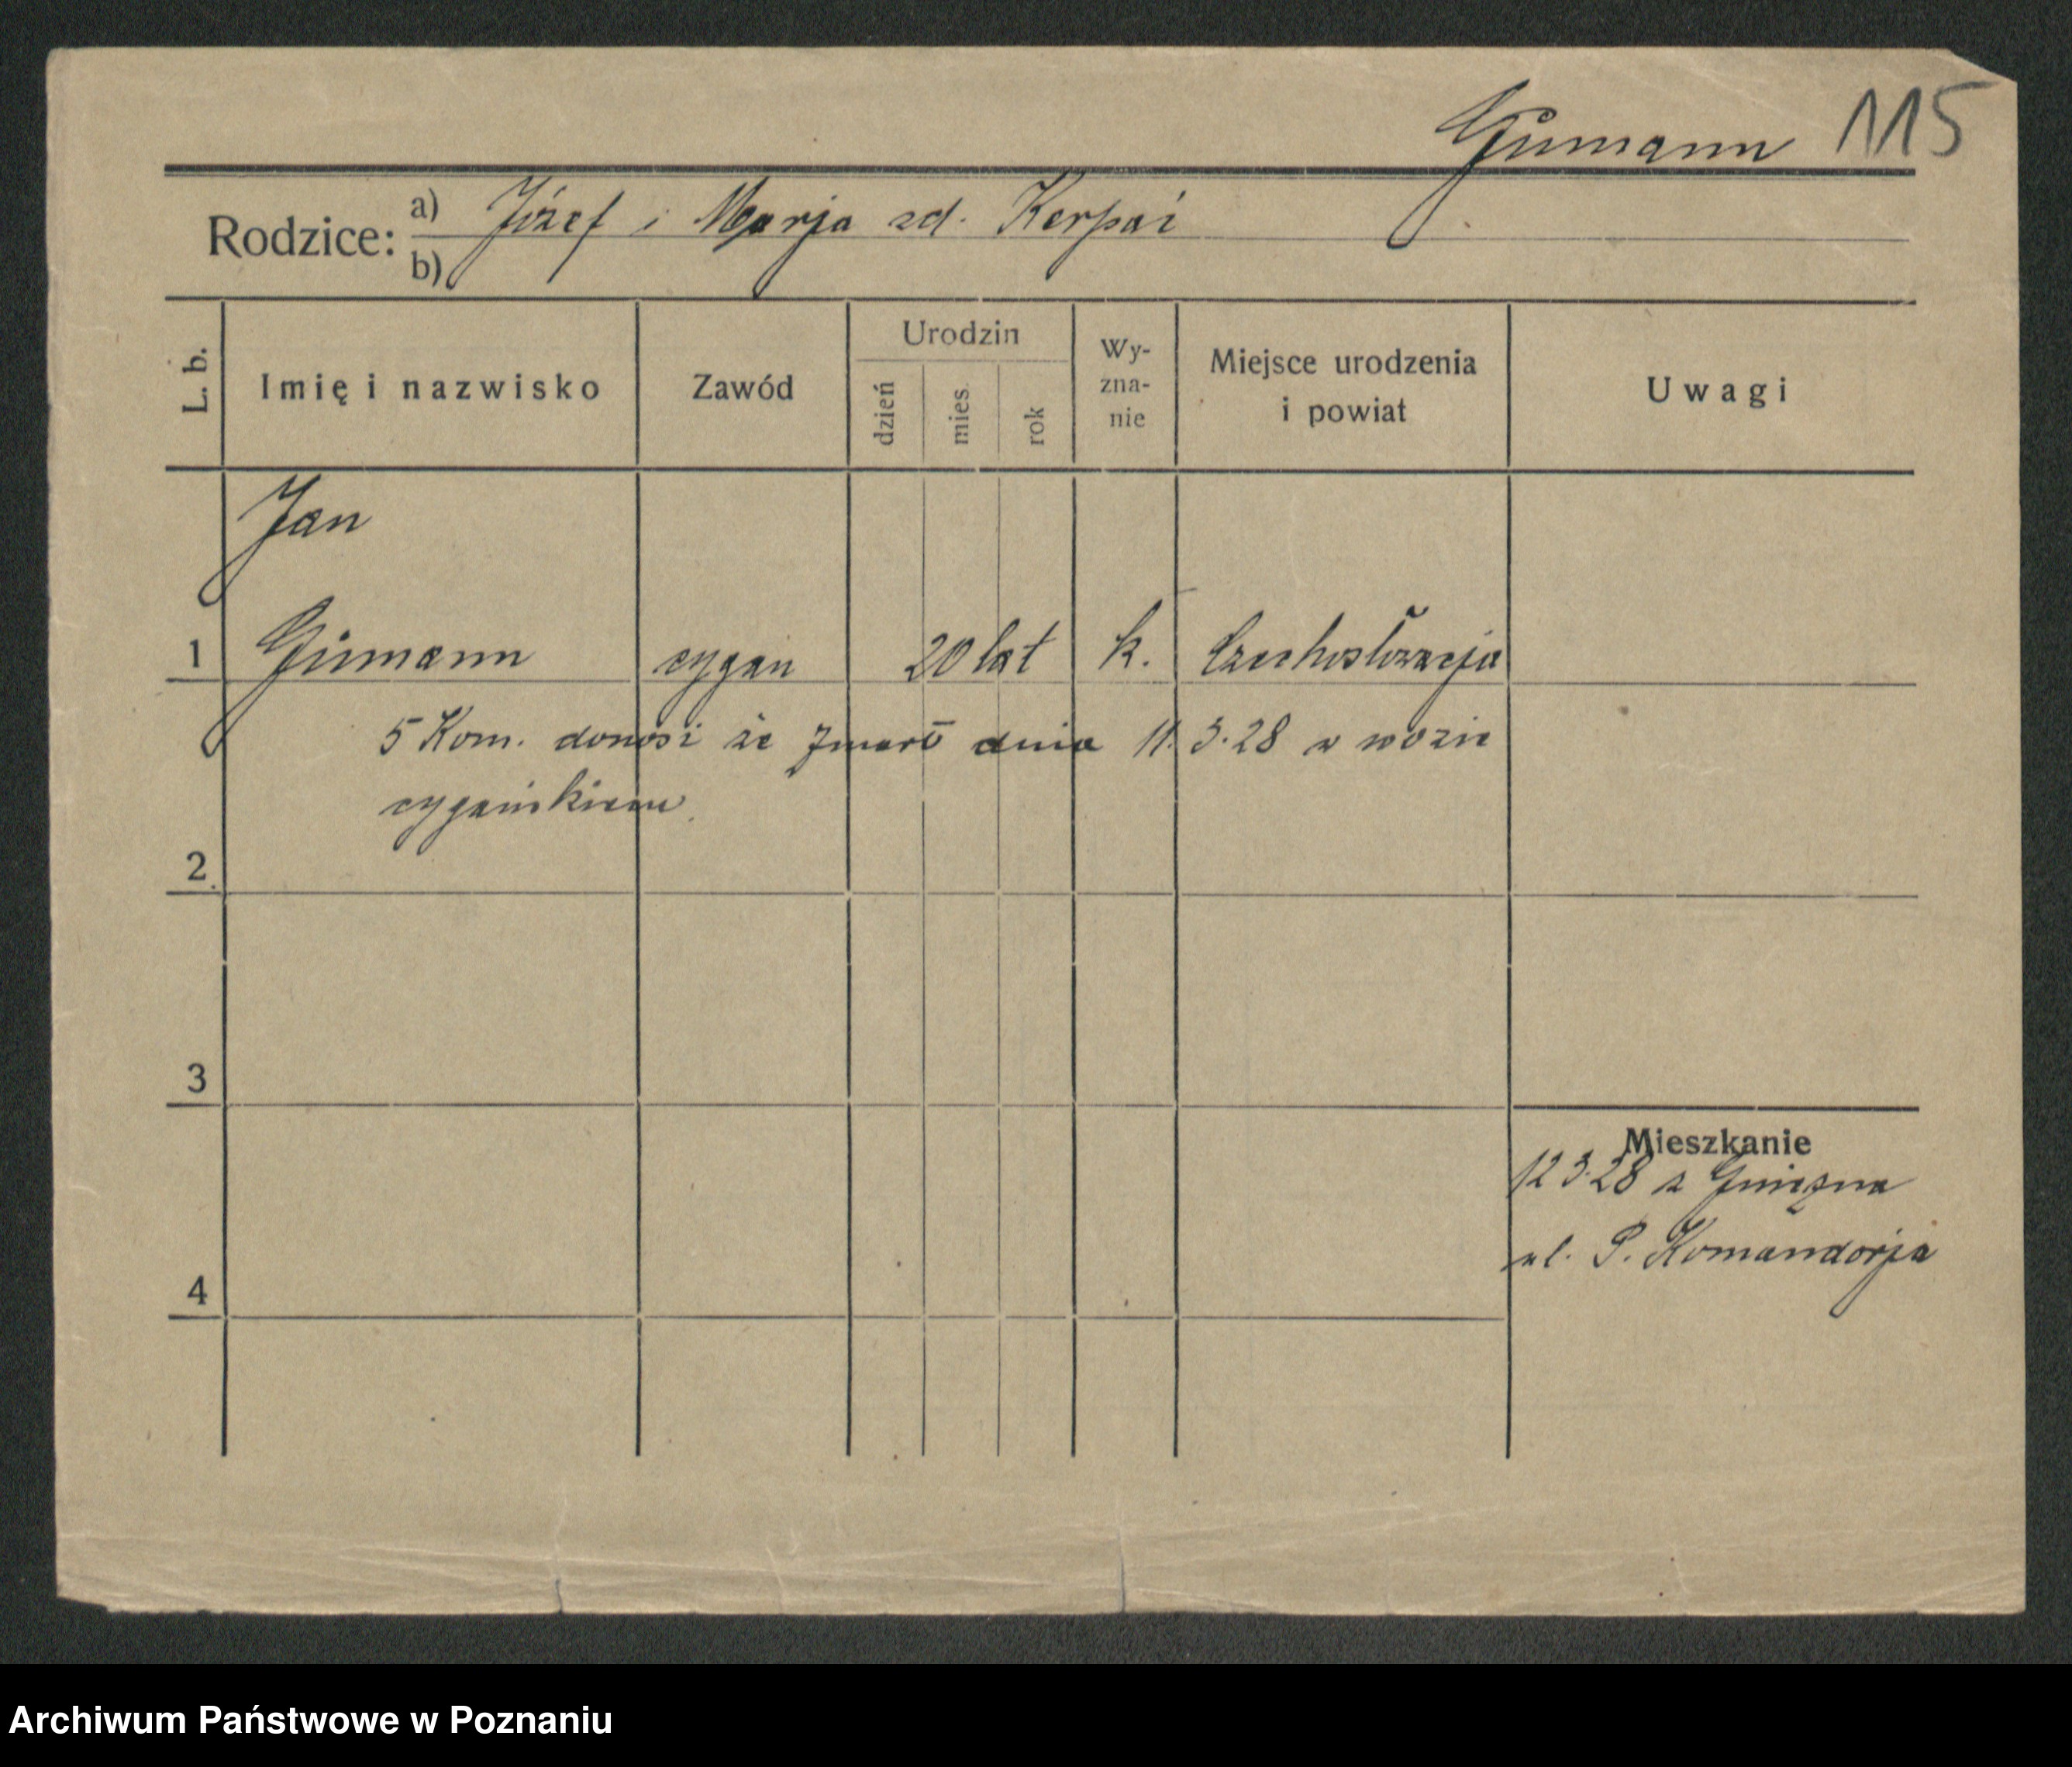 Gümann 115
Rodzice: a) Józef i Marja zd. Kerpai
b)
L. b. Imię i nazwisko Zawód Urodzin dzień mies. rok Wy-zna-nie Miejsce urodzenia i powiat Uwagi
Jan
1 Gümann cygan 20 lat k. Czechosłowacja
5 Kom. donosi że zmarł dnia 11.3.28 w wozie
cygańskiem.
2
3
Mieszkanie
12 3.28 z Gniezna
ul. P. Komandorja
4
Archiwum Państwowe w Poznaniu